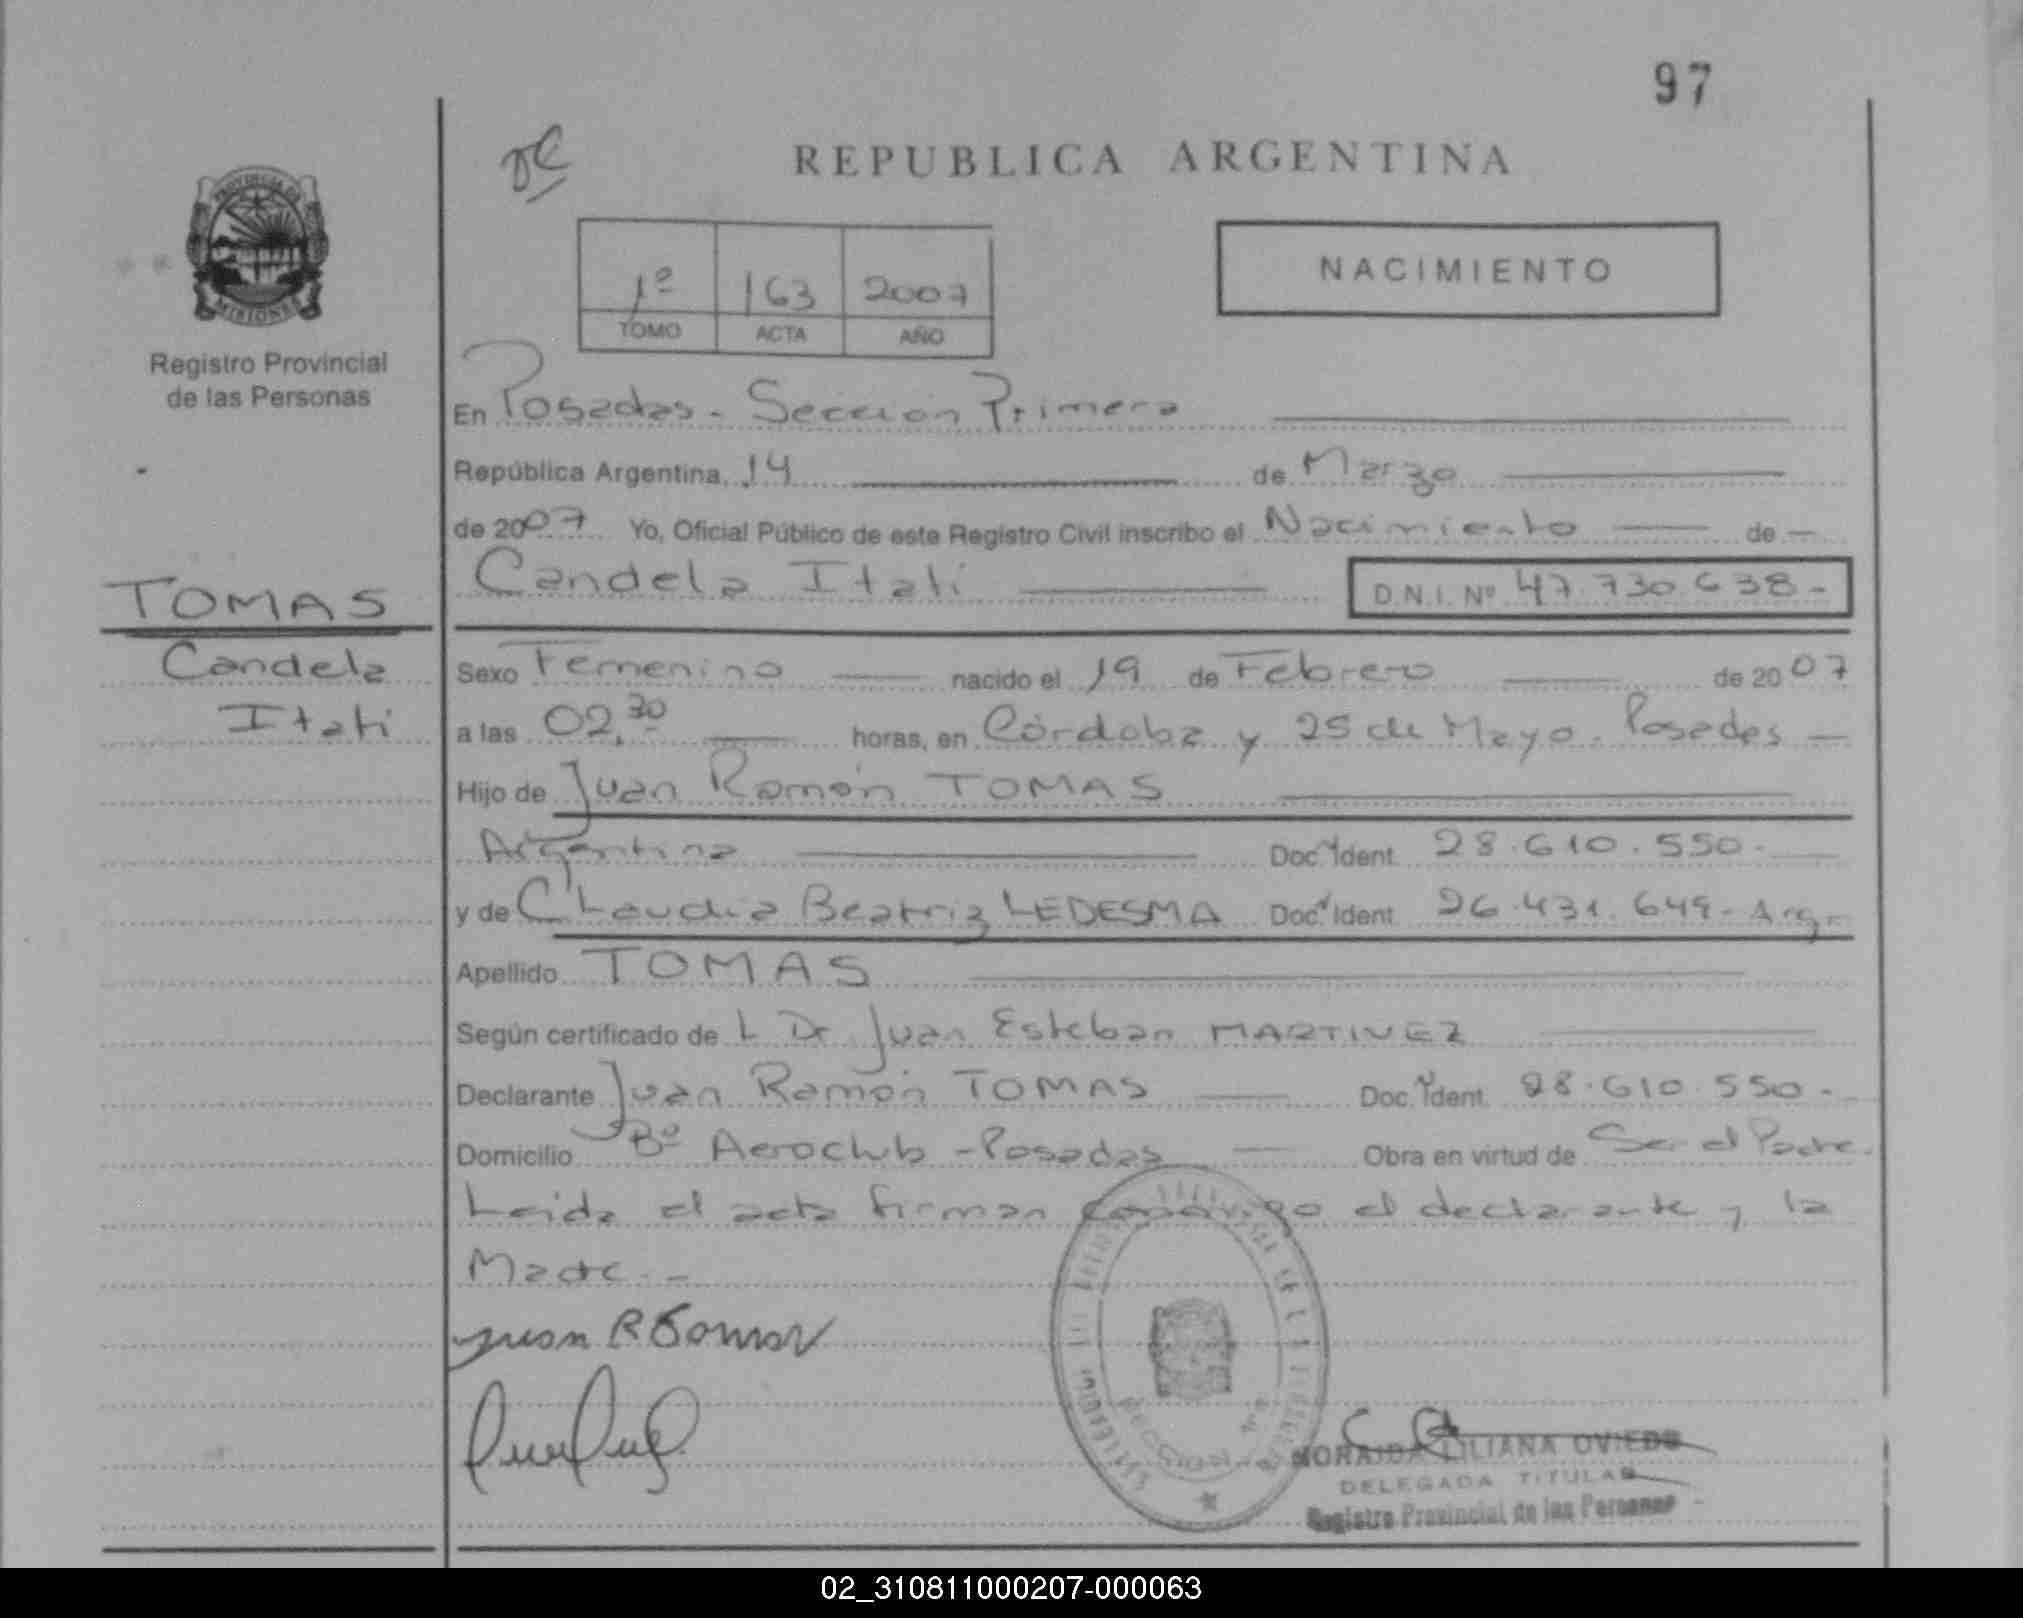 97
REPUBLICA ARGENTINA
PROVINCIA DE
MISIONES
Registro Provincial
de las Personas
1º 163 2007
TOMO ACTA AÑO
NACIMIENTO
En Posadas - Sección Primera
República Argentina, 14 de Marzo
de 2007 Yo, Oficial Público de este Registro Civil inscribo el Nacimiento de
Candela Itatí D.N.I. Nº 47.730.638-
TOMAS
Candela
Itatí
Sexo Femenino nacido el 19 de Febrero de 2007
a las 02,30 horas, en Córdoba y 25 de Mayo. Posadas
Hijo de Juan Ramón TOMAS
Argentina Doc. Ident. 28.610.550.
y de Claudia Beatriz LEDESMA Doc. Ident. 26.431.649- Arg.
Apellido TOMAS
Según certificado de L Dr Juan Esteban MARTINEZ
Declarante Juan Ramón TOMAS Doc. Ident. 28.610.550.-
Domicilio Bº Aeroclub - Posadas Obra en virtud de Ser el Padre.
Leida el acta firman conmigo el declarante y la
Madre.-
Juan R Tomas
NORAIDA LILIANA OVIEDO
DELEGADA TITULAR
Registro Provincial de las Personas
02_310811000207-000063